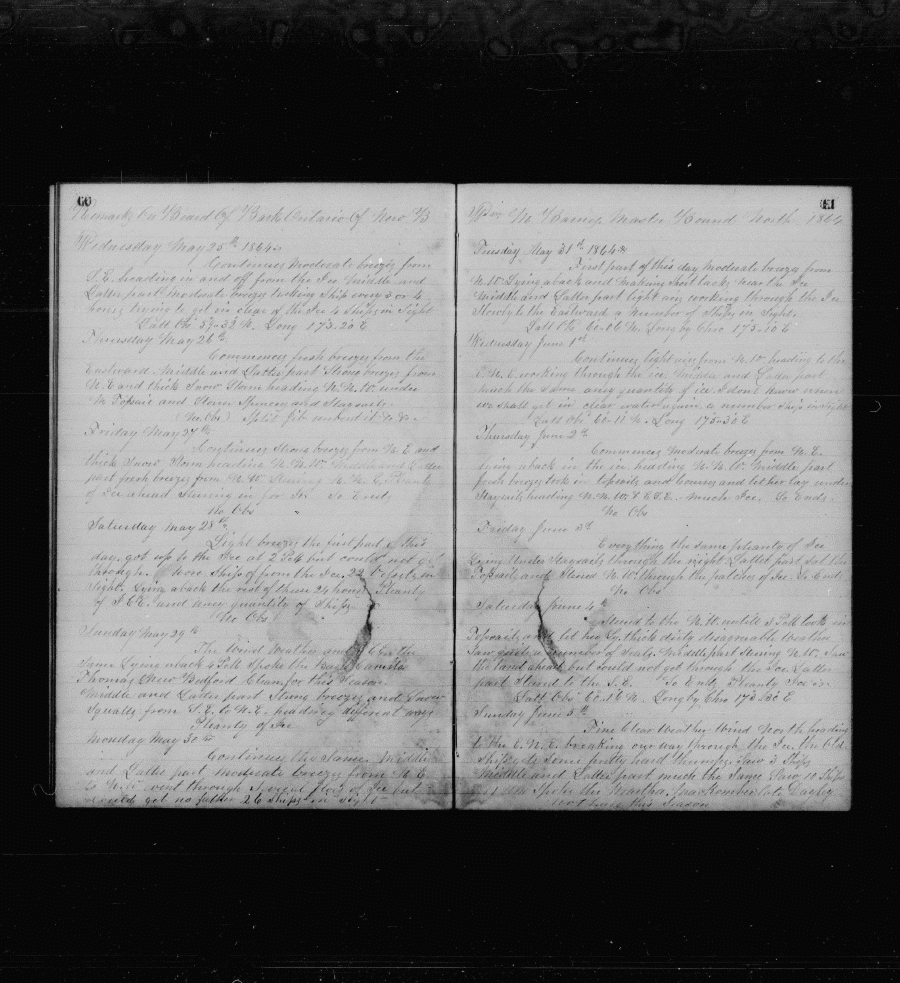 60
Remarks On Board Of Bark Ontario Of New B
Wednesday May 25th 1864
Continues Moderate breezes from
S.E. heading in and off from the Ice Middle and
Latter part Moderate breezes tacking Ship every 3 or 4
hours trying to get in clear of the Ice 4 Ships in Sight
Latt Obs 59-32 N. Long 173-20 E
Thursday May 26th
Commences fresh breezes from the
Eastward. Middle and Latter part Strong breezes from
N.E and thick Snow Storm heading N.N.W. under
M Topsail and Storm Spencer and Staysails
(No Obs) Split Jib
Friday May 27th
Continues Strong breezes from N.E and
thick Snow Storm heading N.N.W. Middle and Latter
part fresh breezes from N.W. Steering N.N.E.
of Ice ahead Steering in for So Ends
No Obs
Saturday May 28th
Light breezes the first part of this
day. got up to the Ice at 2 P.M but could not get
through. Ships of from the Ice. 22
Sight. Lying aback the rest of these 24 hours. Pleanty
of ICE. and any quantity of Ships
No Obs
Sunday May 29th
The Wind Weather and
Same Lying aback 4 P.M Spoke the Bark
Thomas New Bedford Clean for this Season
Middle and Latter part Strong breezes and Snow
Squalls from S.E. to N.E. heading different ways
Pleanty of Ice
Monday May 30th
Continues the Same Middle
and Latter part moderate breezes from N.E
to N.W. went through Several of Ice but
could got no father 26 Ships in Sight
61
M Barnes Master Bound North 1864
Tuesday May 31th 1864
First part of this day Moderate breezes from
N.W. Lying aback and Making Short tacks near the Ice
Middle and Latter part light airs working through the Ice
Slowly to the Eastward a Number of Ships in Sight.
Latt Obs 60-06 N. Long by Chro 175-10 E
Wednesday June 1st
Continues light airs from N.W heading to the
E.N.E. working through the ice. Middle and Lader part
much the Same any quantity of ice I dont know when
we Shall get in clear water again a number Ships in Sight
Latt Obs 60-11 N. Long 175-30 E
Thursday June 2th
Commences Moderate breezes from N.E.
Lying aback in the ice heading N.N.W. Middle part
fresh breezes took in topsails and Courses and let her lay under
Staysails heading N.N.W. & E.S.E. much Ice. So Ends
No Obs
Friday June 3d
Everything the Same pleanty of Ice
Lying Under Staysails through the night Latter part Set the
Topsails and Steered N.W. through the patches of Ice. So Ends
No Obs
Saturday June 4th
Stood to the N.W. untill 3 P.M took in
Topsails and let her Ly. thick dirty disagreable Weather
Saw quite a number of Seals. Middle part Steering N.W. Saw
the land ahead but could not get through the Ice Latter
part Stood to the S.E. So Ends. Pleanty Ice
Latt Obs 60-16 N. Long by Chro 173-30 E
Sunday June 5th
Fine Clear Weather Wind North heading
to the E.N.E. breaking our way through the Ice. the Old
Ship gets Some pretty hard thumps. Saw 3 Ships
Middle and Latter part much the Same Saw 10 Ships
Spoke the
this Season